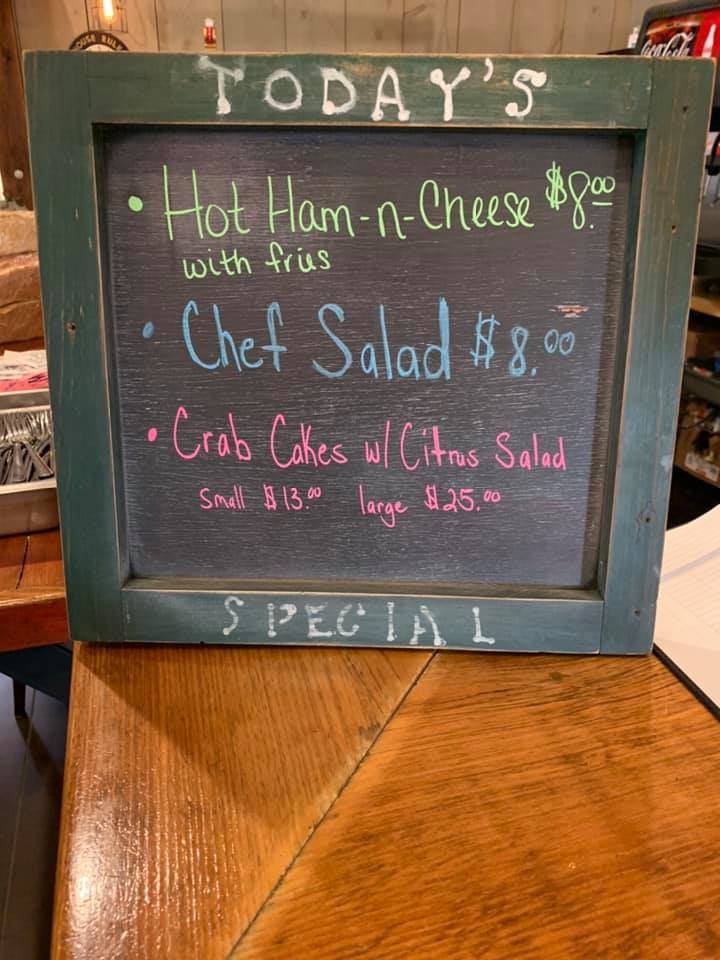 HOUSE RULES
Coca-Cola
TODAY'S
• Hot Ham-n-Cheese $8.00
with fries
• Chef Salad $8.00
• Crab Cakes w/ Citrus Salad
Small $13.00 large $25.00
SPECIAL